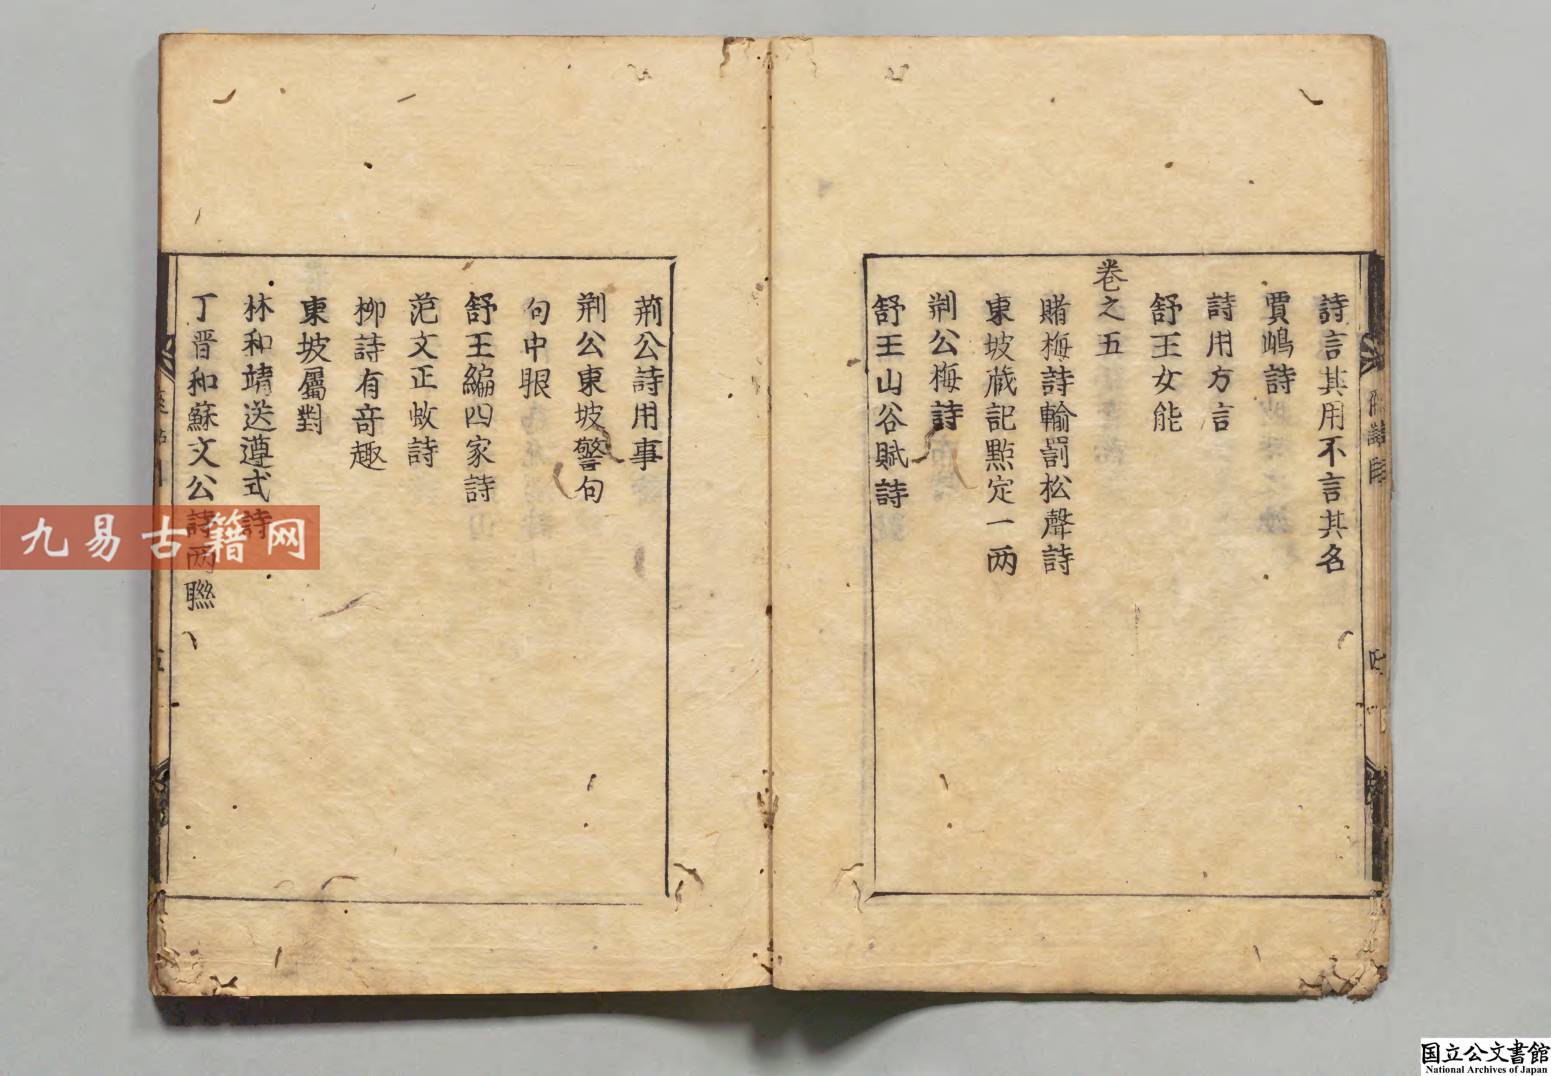 詩言其用不言其名
賈嶋詩
詩用方言
舒王女能
卷之五
賭梅詩輸罰松聲詩
東坡蔵記㸃定一两
荆公梅詩
舒王山谷賦詩
荊公詩用事
荆公東坡警句
句中眼
舒王編四家詩
范文正蚊詩
柳詩有竒趣
東坡屬對
林和靖送遵式詩
丁晋和蘇文公詩两聮
五
九易古籍网
国立公文書館
National Archives of Japan